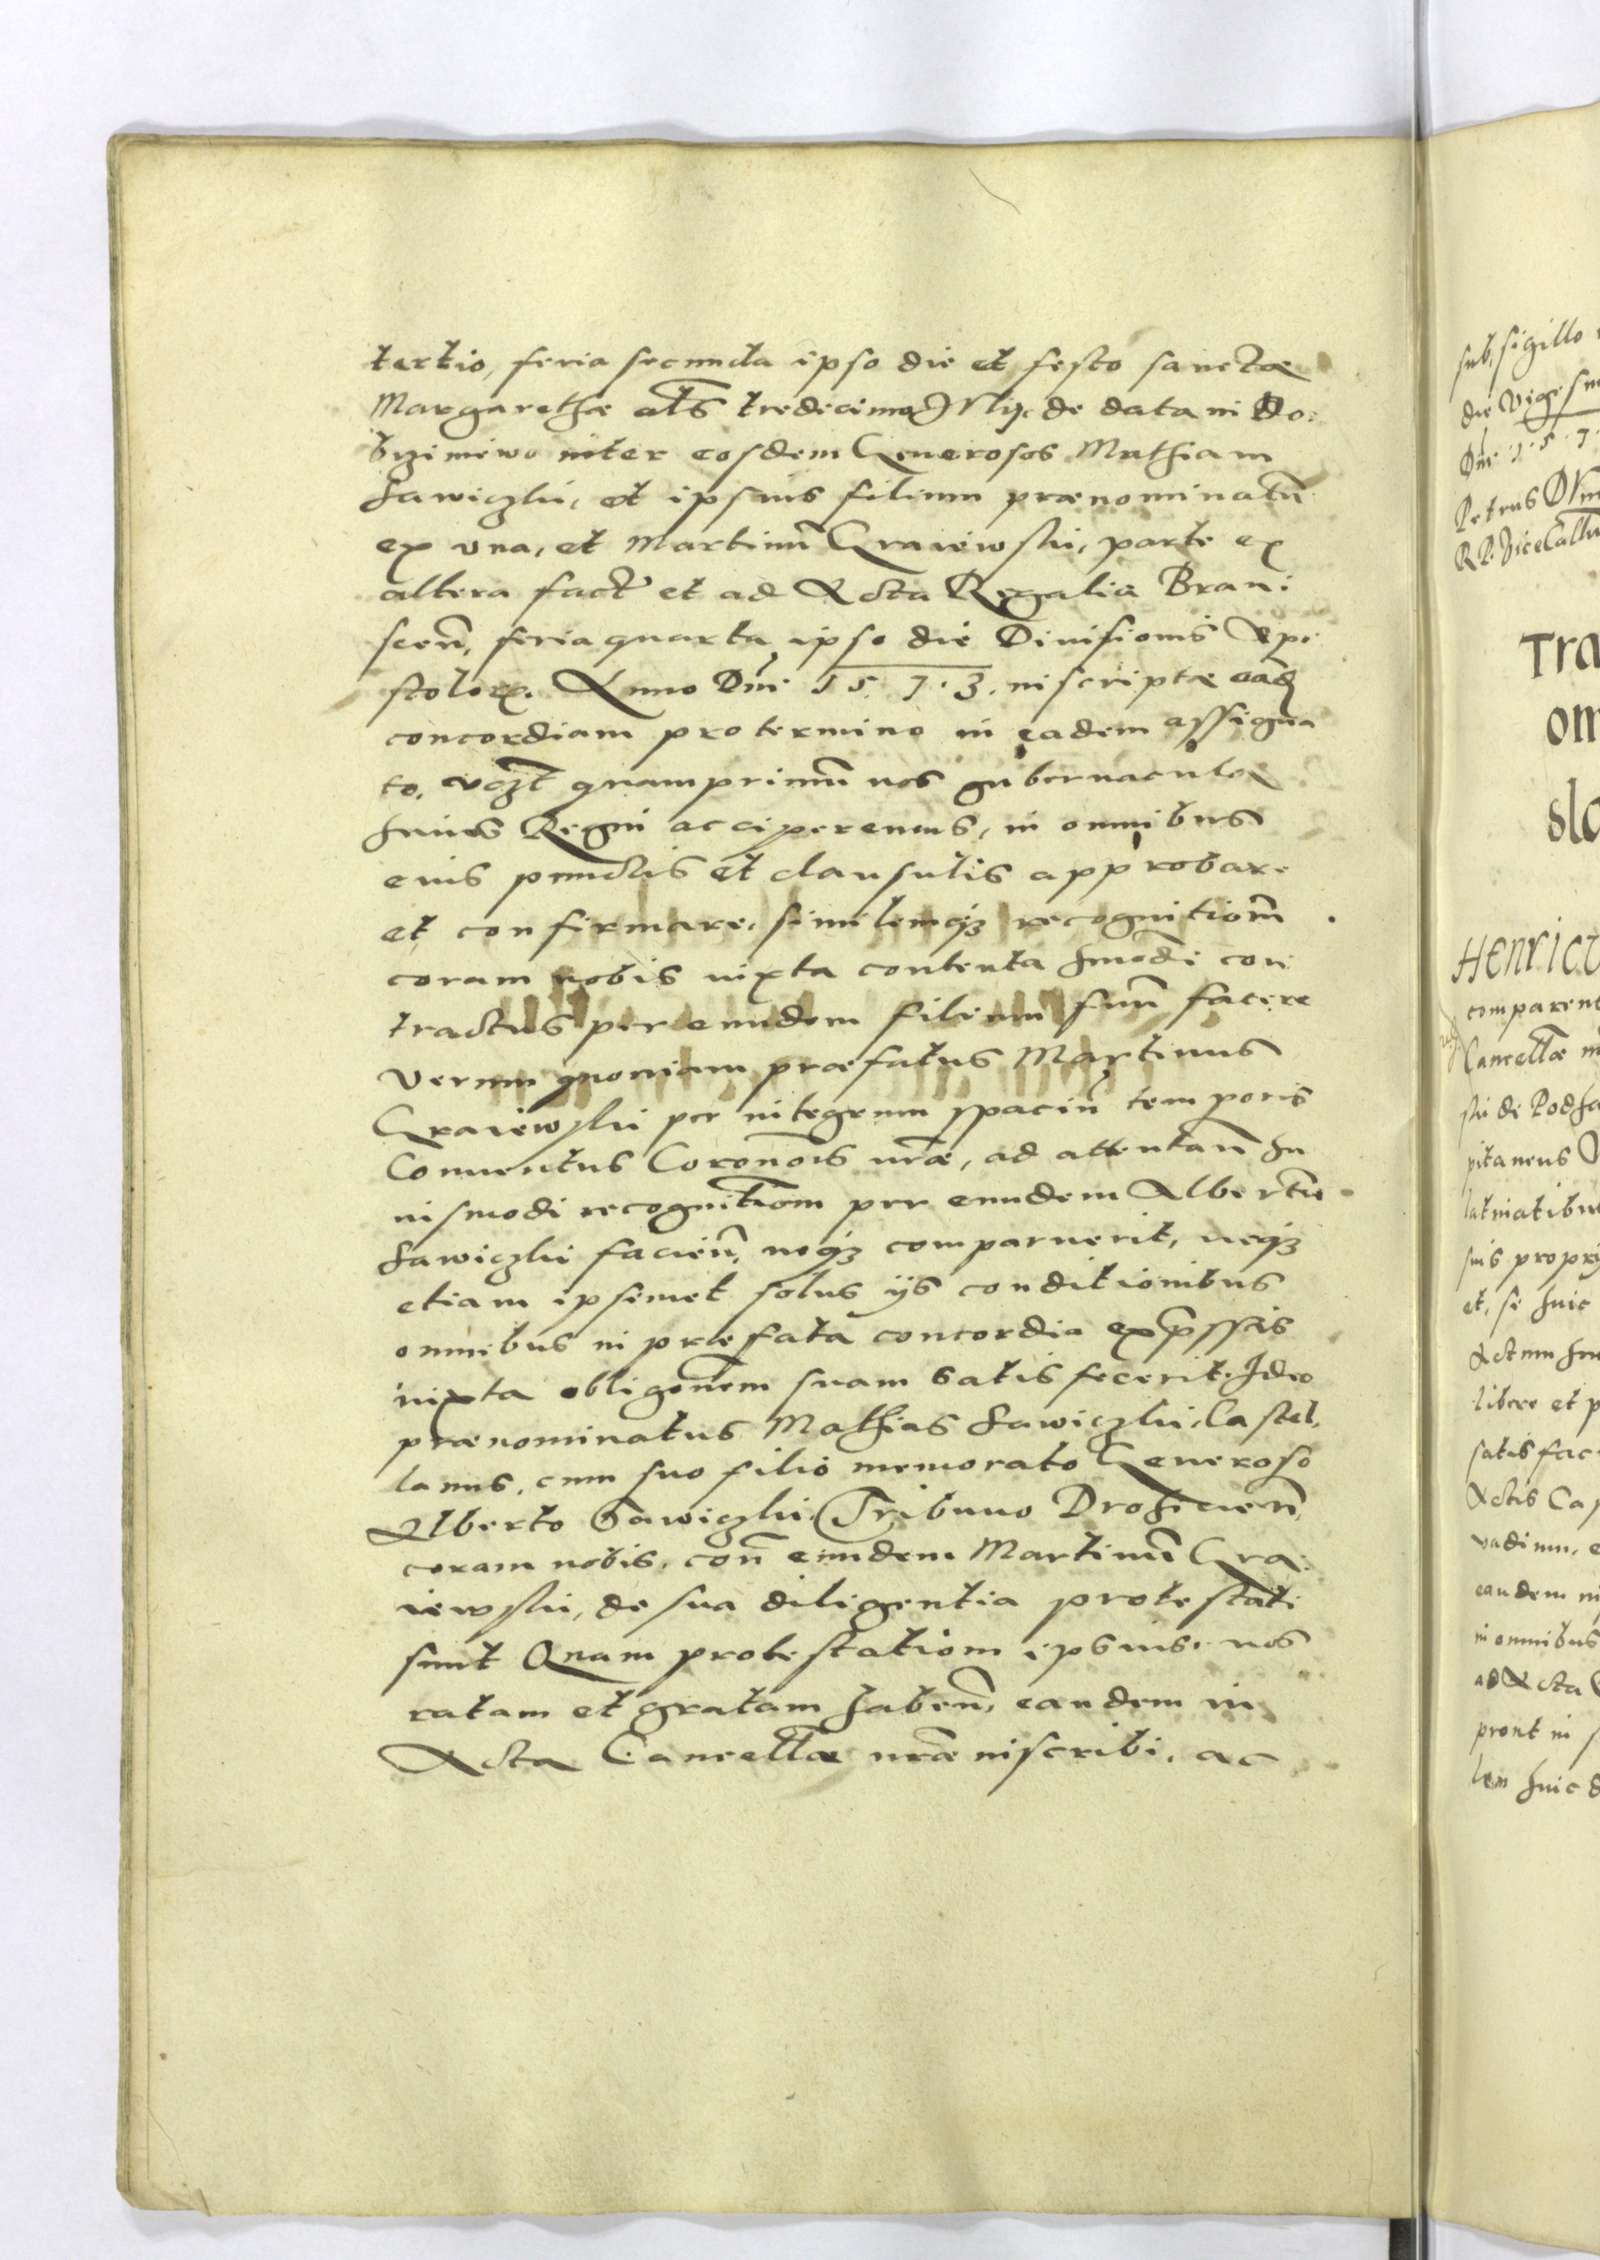 tertio, feria secunda ipso die et festo sanctae
Margarethae als tredecima Julij, de data in Do:
brzimewo inter eosdem Generosos Mathiam
Sawiczki, et ipsius filium praenominatū
ex vna, et Martinū Graiewski, parte ex
altera fact et ad Acta Regalia Bran:
sceñ, feria quarta ipso die Diuisionis Apo:
stolorꝝ. Anno Dni 1573. inscriptae eand
concordiam pro termino in eadem assigna
to, vczt quamprimū nos gubernacula
huius Regni acciperemus, in omnibus
eius punctis et clausulis approbare
et confirmare, similemqꝫ recognitiom̄
coram nobis iuxta contenta hmōdi con
tractus per eundem filium suū facere
verum quoniam praefatus Martinus
Graiewski per integrum spaciū temporis
Conuentus Coronōis nr̄ae, ad attentan̄ hu
iusmodi recognitiom per eundem Albertū
Sawiczki facieñ, neqꝫ comparuerit, neqꝫ
etiam ipsemet solus ijs conditionibus
omnibus in praefata concordia expr̄ssis
iuxta obligōnem suam satis fecerit. Ideo
praenominatus Mathias Sawiczki, Castel,
lanus, cum suo filio memorato Generoso
Alberto Sawiczki, Tribuno Drohicieñ,
coram nobis, con̄ eundem Martinū Gra:
iewski, de sua diligentia protestati
sunt Quam protestatiom ipsius, nos
ratam et gratam habeñ, eandem in
Acta Cancellae nr̄ae inscribi, ac
sub, sigillo
die Vigesm
Dni 157
Petrus
R P. Vicecallu
Tra
om
sla
HENRICU
comparent
Cancellae
ski de Podha
pitaneus
suis proprij
et, se huic
Actum hu
libere et p
satisfac
Actis Cap
vadium, e
eandem in
in omnibus
ad Acta
prout in s
lem huic d